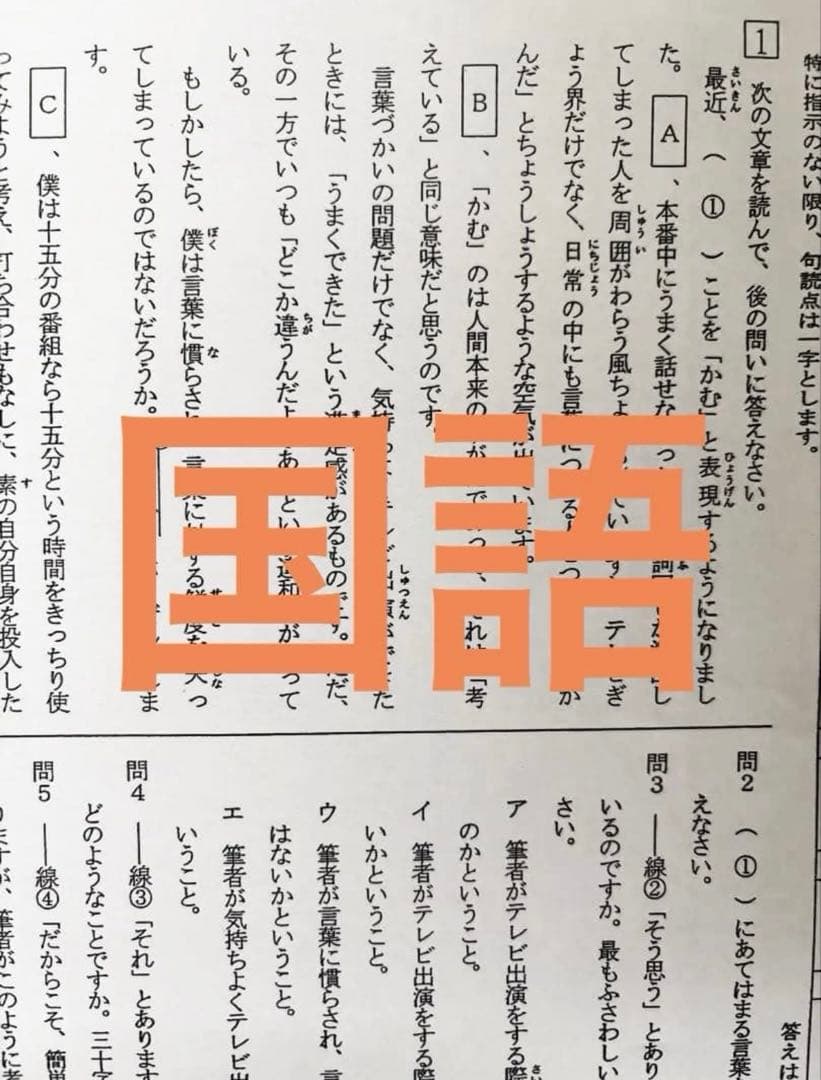 特に指示のない限り、句読点は一字とします。
1 次の文章を読んで、後の問いに答えなさい。
最近、（ ① ）ことを「かむ」と表現するようになりまし
た。 A 、本番中にうまく話せな
てしまった人を周囲がわらう風ちょ
ょう界だけでなく、日常の中にも言葉に
んだ」とちょうしょうするような空気が出ています。
B 、「かむ」のは人間本来の 「考
えている」と同じ意味だと思うのです。
言葉づかいの問題だけでなく、気持 テレビ出演ができた
ときには、「うまくできた」という 感があるものです。ただ、
その一方でいつも「どこか違うんだよ 違和 って
いる。
もしかしたら、僕は言葉に慣らさ 言葉に する鮮度を失っ
てしまっているのではないだろうか。 ま
す。
C 、僕は十五分の番組なら十五分という時間をきっちり使
ってみようと考え、打ち合わせもなしに、素の自分自身を投入した
国語
問2 （ ① ）にあてはまる言葉
えなさい。
問3 ――線②「そう思う」とあり
いるのですか。最もふさわしい
さい。
ア 筆者がテレビ出演をする際
のかということ。
イ 筆者がテレビ出演をする際
いかということ。
ウ 筆者が言葉に慣らされ、言
はないかということ。
エ 筆者が気持ちよくテレビ出
いうこと。
問4 ――線③「それ」とあります
どのようなことですか。三十字
問5 ――線④「だからこそ、簡単
りますが、筆者がこのように考
答えは